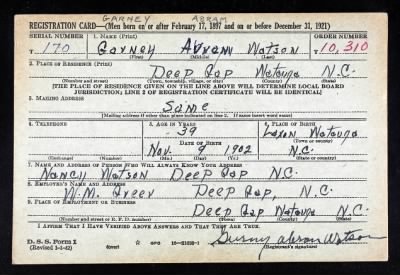 GARNEY ABRAM
REGISTRATION CARD—(Men born on or after February 17, 1897 and on or before December 31, 1921)
SERIAL NUMBER 1. NAME (Print) ORDER NUMBER
T 170 Garney Abram Watson T 10,310
(First) (Middle) (Last)
2. PLACE OF RESIDENCE (Print)
Deep Gap Watauga N.C.
(Number and street) (Town, township, village, or city) (County) (State)
[THE PLACE OF RESIDENCE GIVEN ON THE LINE ABOVE WILL DETERMINE LOCAL BOARD
JURISDICTION; LINE 2 OF REGISTRATION CERTIFICATE WILL BE IDENTICAL]
3. MAILING ADDRESS
Same
[Mailing address if other than place indicated on line 2. If same insert word same]
4. TELEPHONE 5. AGE IN YEARS 6. PLACE OF BIRTH
39 Laxon, Watauga
DATE OF BIRTH (Town or county)
Nov. 9 1902 N.C.
(Exchange) (Number) (Mo.) (Day) (Yr.) (State or country)
7. NAME AND ADDRESS OF PERSON WHO WILL ALWAYS KNOW YOUR ADDRESS
Nancy Watson Deep Gap N.C.
8. EMPLOYER'S NAME AND ADDRESS
W.M. Greer Deep Gap, N.C.
9. PLACE OF EMPLOYMENT OR BUSINESS
Deep Gap Watauga N.C.
(Number and street or R. F. D. number) (Town) (County) (State)
I AFFIRM THAT I HAVE VERIFIED ABOVE ANSWERS AND THAT THEY ARE TRUE.
D. S. S. Form 1
(Revised 1-1-42) (over) GPO 16-21630-1 Watson
(Registrant's signature)